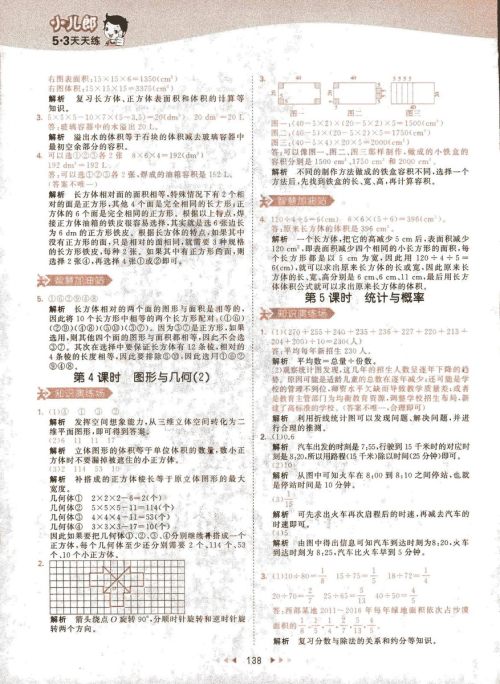 小儿郎
5·3天天练
右图表面积:15×15×6=1350(cm²)
右图体积:15×15×15=3375(cm³)
解析 复习长方体、正方体表面积和体积的计算等
知识。
3. 5×5×5-10×7×(5-3.5)=20(dm³) 20 dm³=20 L
答:玻璃容器中的水溢出 20 L。
解析 溢出水的体积等于石块的体积减去玻璃容器中
最初空余部分的容积。
4. 可以选①②③各 2 张 8×6×4=192(dm³)
192 dm³=192 L
(答案不唯一)
解析 长方体相对面的面积相等,特殊情况下有 2 个相
对的面是正方形,其他 4 个面是完全相同的长方形;正
方体的 6 个面是完全相同的正方形。根据以上特点,焊
接正方体油箱的铁皮很容易选择,其实就是选 6 张边长
为 6 dm 的正方形铁皮。根据长方体的特点,如果其中
没有正方形的面,只是对的面相同,就需要 3 种规格
的长方形铁皮,每种 2 张。如果其中有正方形的面,则
选择 2 张④,再选择 4 张①或②即可。
智慧加油站
解析 长方体相对的两个面的图形与面积是相等的,
第 4 课时 图形与几何(2)
知识演练场
解析 发挥空间想象能力,从三维立体空间转化为二
维平面图形,即可得到答案。
(2)6 11 11 17
解析 立体图形的体积等于单位体积的数量,数小正
方体时不要漏掉被遮住的小正方体。
(3)2 114 53 10
解析 补搭成的正方体棱长等于原立体图形的最大
宽度。
几何体① 2×2×2-6=2(个)
几何体② 5×5×5-11=114(个)
几何体③ 4×4×4-11=53(个)
几何体④ 3×3×3-17=10(个)
因此如果要把几何体①、②、③、④分别继续补搭成一个
正方体,每个几何体至少还分别需要 2 个、114 个、53
个、10 个小正方体。
2.
解析 箭头绕点 O 旋转 90°,分顺时针旋转和逆时针旋
转两个方向。
3.
图一 图二 图三
图一:(40-5×2)×(20-5×2)×5=1500(cm³)
图二:(40-5)×(20-5×2)×5=1750(cm³)
图三:(40-5×4)×20×5=2000(cm³)
答:可以像图一、图二、图三那样制作,做成的小铁盒的
容积分别是 1500 cm³、1750 cm³ 和 2000 cm³。
解析 不同的制作方法做成的铁盒容积不同,选择一个
方法后,先找到铁盒的长、宽、高,再计算容积。
智慧加油站
4. 120÷4÷5=6(cm) 6×6×(5+6)=396(cm³)
答:原来长方体的体积是 396 cm³。
解析 一个长方体,把它的高减少 5 cm 后,表面积减少
120 cm²,即表面积减少四个相同的小长方形的面积,每
个长方形都是以 5 cm 为宽,因此用 120÷4÷5=
6(cm),就可以求出原来长方体的长或宽,因此原来长
方体的长、宽、高分别是 6 cm、6 cm、11 cm,最后用长方
体体积公式就可以求出原来长方体的体积。
第 5 课时 统计与概率
知识演练场
1. (1)(270+255+240+235+236+227+220+213+
204+200)÷10=230(人)
答:平均每年新招生 230 人。
解析 平均数=总量÷份数。
(2)观察统计图发现,这几年的招生人数呈逐年下降的趋
建了高标准的学校。(答案不唯一,合理即可)
解析 利用折线统计图可以发现问题、解决问题,并进
行合理的推测。
2. (1)0.6
解析 汽车出发的时刻是 7:55,行驶到 15 千米时的对应时
刻是 8:20,所以用路程(15 千米)除以时间(25 分钟)即可。
(2)10
解析 从图中可知火车在 8:00 到 8:10 之间停站,也就
是停站时间是 10 分钟。
解析 可先求出火车再次启程后的时速,再减去汽车的
时速即可。
(4)5
解析 由图中得出信息可知汽车到达时刻为 8:20,火车
到达时刻为 8:25,汽车比火车早到 5 分钟。
3. (1)10÷80=1/8 15÷75=1/5 18÷72=1/4
20÷70=2/7 25÷65=5/13 40÷50=4/5
答:西部某地 2011~2016 年每年绿地面积依次占沙漠
面积的1/8、1/5、1/4、2/7、5/13、4/5。
解析 复习分数与除法的关系和约分等知识。
138